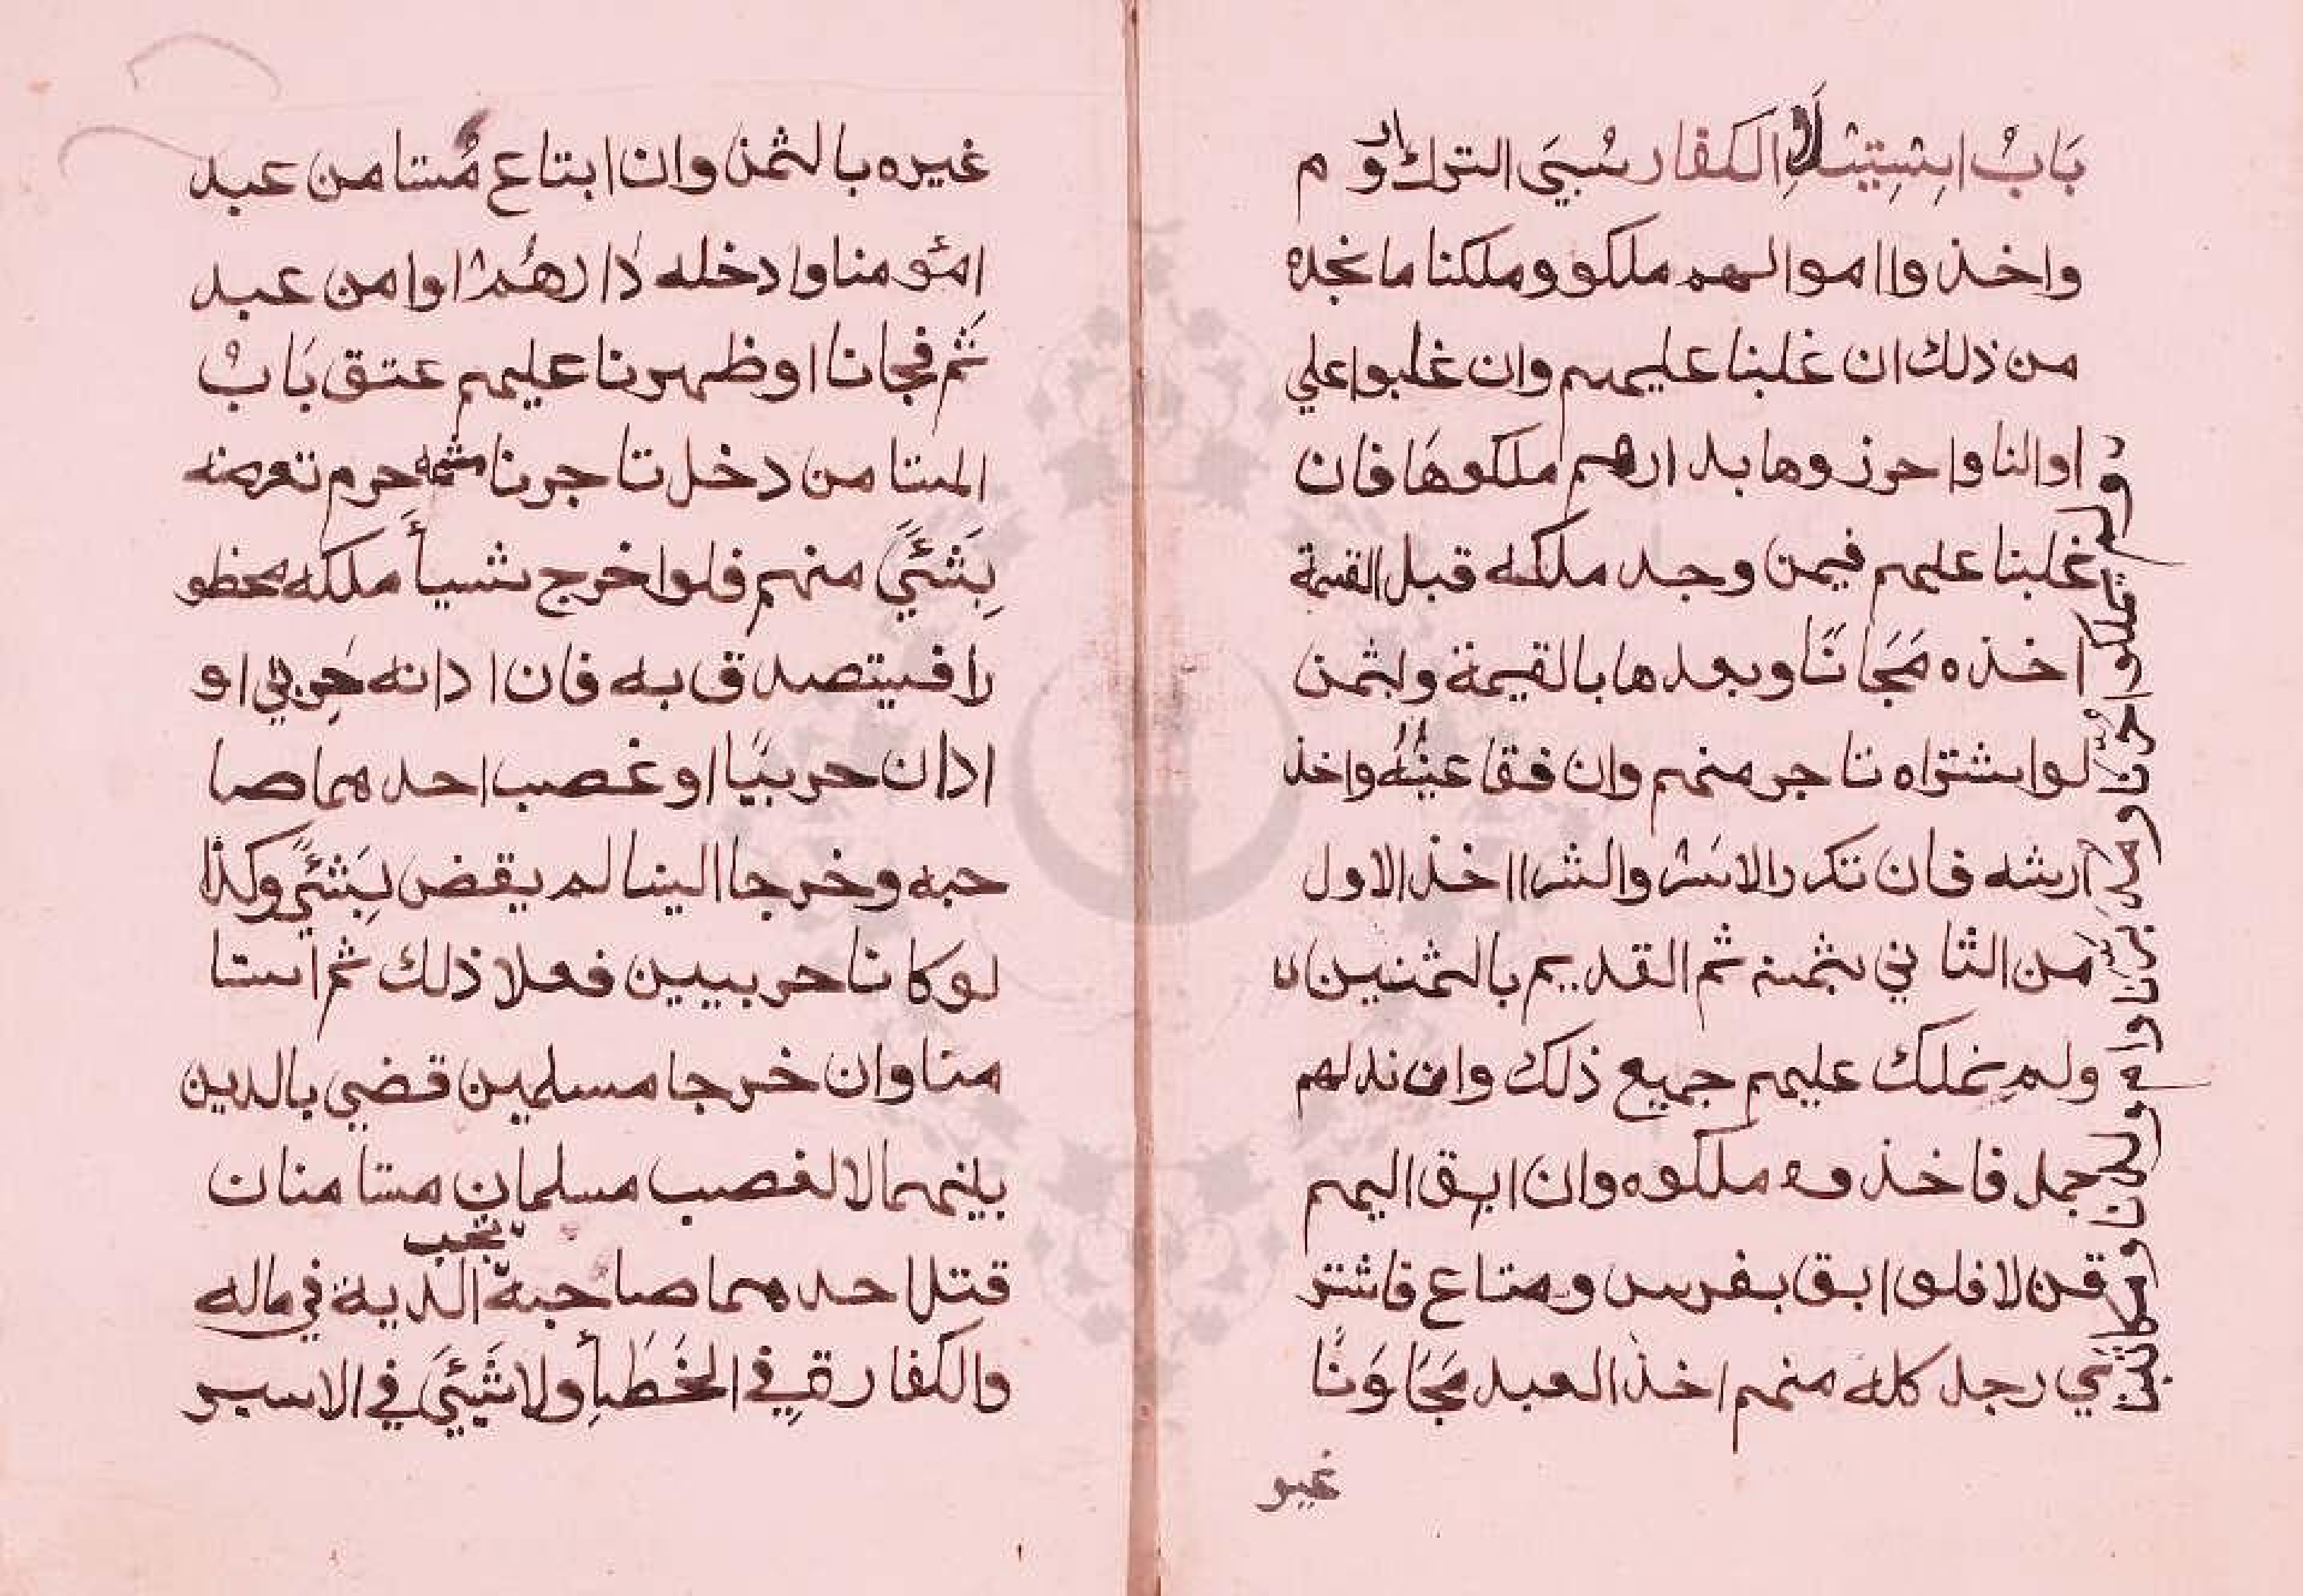 بَابُ اسْتِيْلَاءِ الكفار سُبِيَ الترك الروم
واخذوا اموالهم ملكو وملكنا مانجده
من ذلك ان غلبنا عليهم وان غلبوا علي
اوالنا واحرزوها بدارهم ملكوهَا فان
غلبنا عليهم فيمن وجد ملكه قبل القسمة
اخذه مَجَانًا وبعدها بالقيمة ولبثمن
لوا شتراه تاجر منهم وان فقا عينُهُ واخذ
ارشه فان تكرر الاسْر والشراا خذ الاول
من الثا ني بثمنه ثم القديم بالثمنين
ولم نملك عليهم جميع ذلك وان ند لهم
جمل فاخذوه ملكوه وان ابق اليهم
قن لا فلو ابق بفرس ومتاع فاشتر
ي رجل كله منهم اخذ العبد مَجَاوَنًا
غيو
ولم يملكوا حُرَّنا ومدَبَّرنا وام ولدنا ومكاتبن
غيره بالثمن وان ابتاع مُستا من عبد
امؤمنا وادخله دارهُمْ اوامن عبد
ثَم فجانا اوظهرنا عليهم عتق بَابُ
المستا من دخل تاجرنا ثمه حرم تعرضه
بِشَئَيً منهم فلواخرج شسيأً ملكه محظو
را فيتصدق به فان ادانه حِربي او
ادان حربيًا او غصب احدهما صا
حبه وخرجا الينا لم يقض بِشَئَيً وكذا
لوكانا حربيين فعلا ذلك ثم استا
منا وان خرجا مسلمين قضي بالدين
بينهما لا الغصب مسلمان مستا منان
قتل احدهما صاحبه تجب الدية في ماله
والكفارة في الخَطَأِ ولا شَيْئَي في الاسير